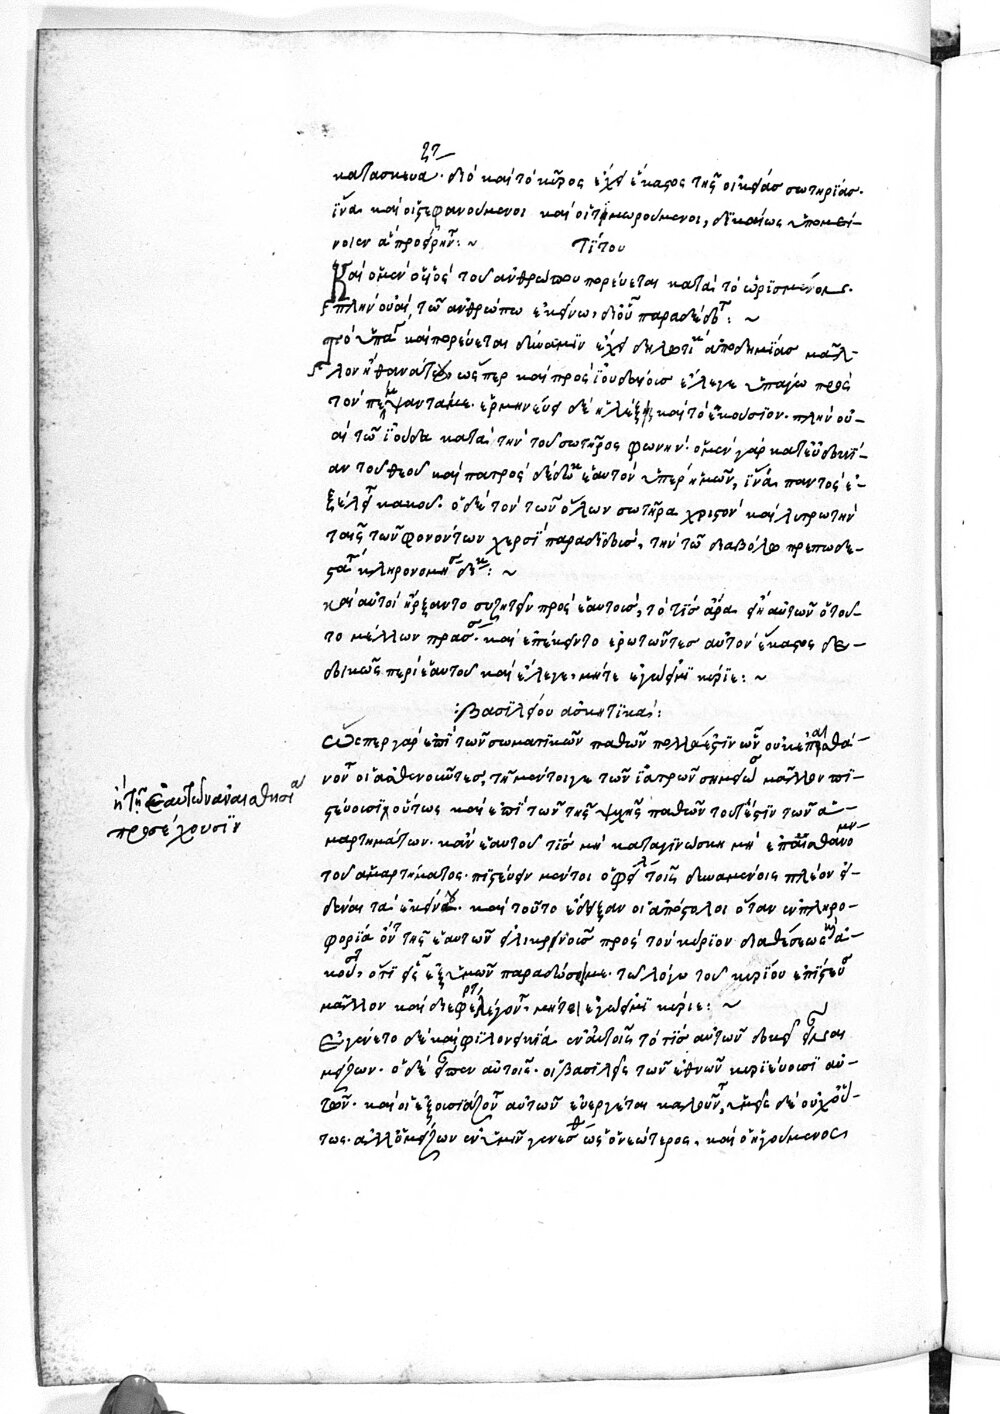 κατασκευά. διὸ καὶ τὸ κῦρος ἔχει ἕκαστος τῆς οἰκείας σωτηρίας.
ἵνα καὶ οἱ στεφανούμενοι καὶ οἱ τιμωρούμενοι, δικαίως ὑπομεί-
Τίτου
Καὶ ὁ μὲν υἱὸς τοῦ ἀνθρώπου πορεύεται κατὰ τὸ ὡρισμένον.
πλὴν οὐαὶ τῶ ἀνθρώπω ἐκείνω, δι' οὗ παραδίδοται: ~
τὸ ὑπάγει καὶ πορεύεται δύναμιν ἔχει δηλωτικὴν ἀποδημίας μᾶλ-
λον ἢ θανάτου, ὥσπερ καὶ πρὸς ἰουδαίοις ἔλεγε ὑπάγω πρὸς
τὸν πέμψαντά με. ἑρμηνεύει δὲ ἡ λέξις καὶ τὸ ἑκούσιον. πλὴν οὐ-
αὶ τῶ ἰούδα κατὰ τὴν τοῦ σωτῆρος φωνήν. ὁ μὲν γὰρ κατ' εὐδοκί-
αν τοῦ θεοῦ καὶ πατρὸς δέδωκεν ἑαυτὸν ὑπὲρ ἡμῶν, ἵνα παντὸς ἐ-
ξέληται κακοῦ. ὁ δὲ τὸν τῶν ὅλων σωτῆρα χριστὸν καὶ λυτρωτὴν
ταῖς τῶν φονώντων χερσὶ παραδιδοὺς, τὴν τῶ διαβόλω πρεπωδε-
στάτην κληρονομήσει δίκην: ~
Καὶ αὐτοὶ ἤρξαντο συζητεῖν πρὸς ἑαυτοὺς, τὸ τίς ἄρα εἴη ἐξ αὐτῶν ὁ τοῦ-
το μέλλων πράσσειν. καὶ ἐπέκειντο ἐρωτῶντες αὐτὸν ἕκαστος δε-
δοικὼς περὶ ἑαυτοῦ καὶ ἔλεγε, μήτι ἐγώ εἰμι κύριε: ~
:Βασιλείου ἀσκητικά:
Ὥσπερ γὰρ ἐπὶ τῶν σωματικῶν παθῶν πολλά ἐστιν ὧν οὐκ ἐπαισθά-
νονται οἱ ἀσθενοῦντες, τῆ μέντοιγε τῶν ἰατρῶν σημειώσει μᾶλλον πι-
στεύουσι, οὕτως καὶ ἐπὶ τῶν τῆς ψυχῆς παθῶν τουτέστιν τῶν ἁ-
μαρτημάτων. κἂν ἑαυτοῦ τὶς μὴ καταγινώσκη μὴ ἐπαισθανόμενος
τοῦ ἁμαρτήματος. πιστεύειν μέντοι ὀφείλει τοῖς δυναμένοις πλέον εἰ-
δέναι τὰ ἐκείνου. καὶ τοῦτο ἔδειξαν οἱ ἀπόστολοι ὅταν ἐν πληρο-
φορία ὄντες τῆς ἑαυτῶν εἰλικρινοῦς πρὸς τὸν κύριον διαθέσεως ἀ-
κούσαντες, ὅτι εἷς ἐξ ὑμῶν παραδώσει με. τῶ λόγω τοῦ κυρίου ἐπίστευσαν
Ἐγένετο δὲ καὶ φιλονεικία ἐν αὐτοῖς τὸ τίς αὐτῶν δοκεῖ εἶναι
μείζων. ὁ δὲ εἶπεν αὐτοῖς. οἱ βασιλεῖς τῶν ἐθνῶν κυριεύουσι αὐ-
τῶν. καὶ οἱ ἐξουσιάζοντες αὐτῶν εὐεργέται καλοῦνται, ὑμεῖς δὲ οὐχ οὕ-
τως. ἀλλ' ὁ μείζων ἐν ὑμῖν γενέσθω ὡς ὁ νεώτερος, καὶ ὁ ἡγούμενος
ἢ τῆ ἑαυτῶν ἀναισθησία
προσέχουσιν